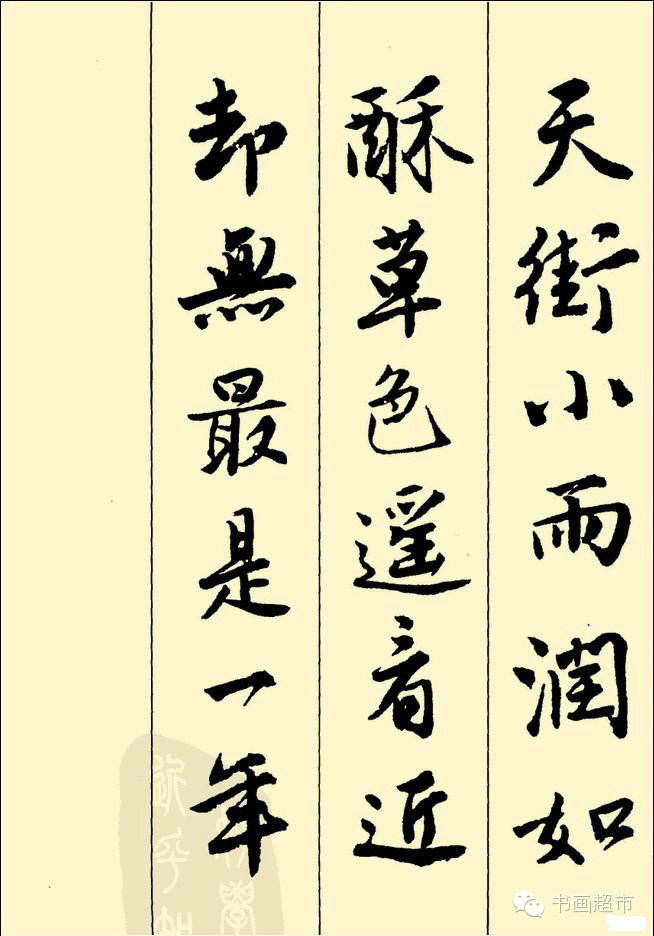 天街小雨潤如
酥草色遥看近
却無最是一年
近乎知
學
书画超市